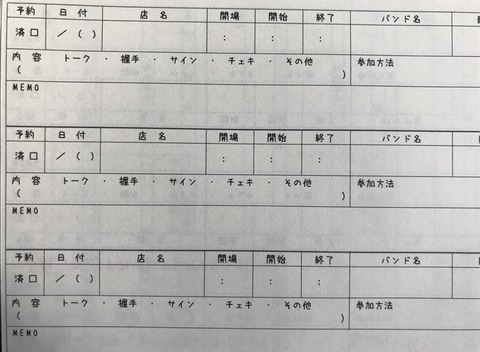 予約 日 付 店 名 開場 開始 終了 バンド名
済 口 / ( ) : : :
内 容 トーク ・ 握手 ・ サイン ・ チェキ ・ その他 参加方法
( )
MEMO
予約 日 付 店 名 開場 開始 終了 バンド名
済 口 / ( ) : : :
内 容 トーク ・ 握手 ・ サイン ・ チェキ ・ その他 参加方法
( )
MEMO
予約 日 付 店 名 開場 開始 終了 バンド名
済 口 / ( ) : : :
内 容 トーク ・ 握手 ・ サイン ・ チェキ ・ その他 参加方法
( )
MEMO